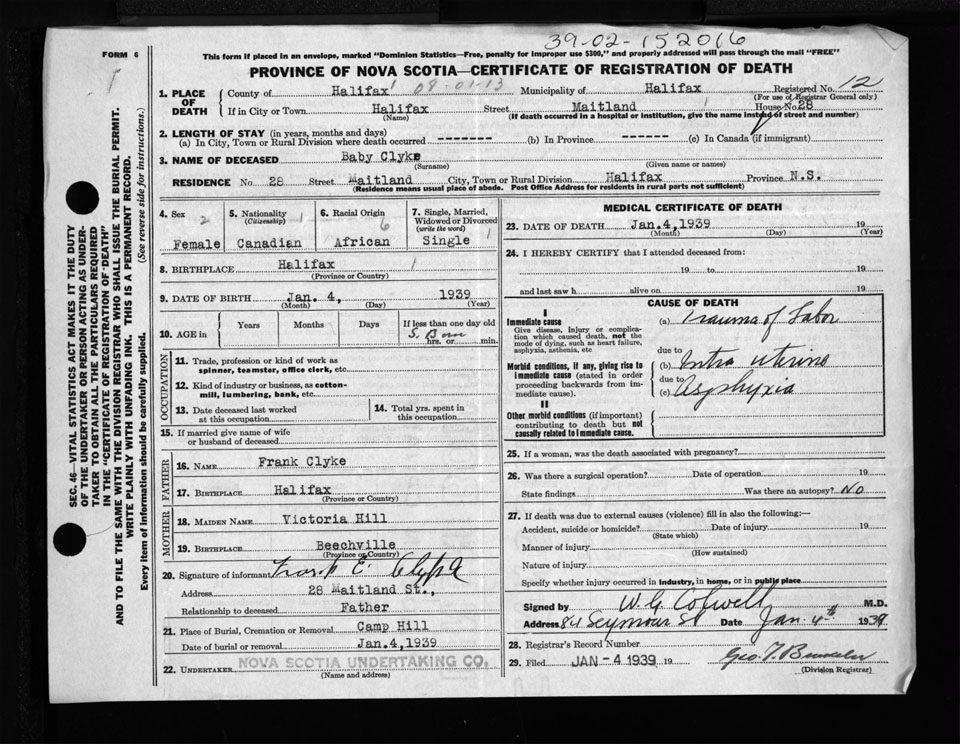 39-02-152016
FORM 6
This form if placed in an envelope, marked "Dominion Statistics—Free, penalty for improper use $300," and properly addressed will pass through the mail "FREE"
PROVINCE OF NOVA SCOTIA—CERTIFICATE OF REGISTRATION OF DEATH
1. PLACE OF DEATH
County of Halifax 08-01-13 Municipality of Halifax Registered No. 12
(For use of Registrar General only)
If in City or Town Halifax Street Maitland House No. 28
(Name) (If death occurred in a hospital or institution, give the name instead of street and number)
2. LENGTH OF STAY (in years, months and days)
(a) In City, Town or Rural Division where death occurred ------- (b) In Province ------ (c) In Canada (if immigrant)
3. NAME OF DECEASED Baby Clyke
(Surname) (Given name or names)
RESIDENCE No. 28 Street Maitland City, Town or Rural Division Halifax Province N.S.
(Residence means usual place of abode. Post Office Address for residents in rural parts not sufficient)
4. Sex 2 Female
5. Nationality (Citizenship) 1 Canadian
6. Racial Origin 6 African
7. Single, Married, Widowed or Divorced (write the word) 1 Single
8. BIRTHPLACE Halifax 1
(Province or Country)
9. DATE OF BIRTH Jan. 4, 1939
(Month) (Day) (Year)
10. AGE in Years Months Days If less than one day old
S. Born
hrs. or min.
OCCUPATION
11. Trade, profession or kind of work as spinner, teamster, office clerk, etc.
12. Kind of industry or business, as cotton-mill, lumbering, bank, etc.
13. Date deceased last worked at this occupation
14. Total yrs. spent in this occupation
15. If married give name of wife or husband of deceased
FATHER
16. NAME Frank Clyke
17. BIRTHPLACE Halifax
(Province or Country)
MOTHER
18. MAIDEN NAME Victoria Hill
19. BIRTHPLACE Beechville
(Province or Country)
20. Signature of informant Frank E. Clyke
Address 28 Maitland St.,
Relationship to deceased Father
21. Place of Burial, Cremation or Removal Camp Hill
Date of burial or removal Jan.4,1939
22. UNDERTAKER NOVA SCOTIA UNDERTAKING CO.
(Name and address)
MEDICAL CERTIFICATE OF DEATH
23. DATE OF DEATH Jan.4,1939 19
(Month) (Day) (Year)
24. I HEREBY CERTIFY that I attended deceased from:
19 to 19
and last saw h alive on 19
CAUSE OF DEATH
I
Immediate cause
Give disease, injury or complication which caused death, not the mode of dying, such as heart failure, asphyxia, asthenia, etc
(a) Trauma of Labor
due to
Morbid conditions, if any, giving rise to immediate cause (stated in order proceeding backwards from immediate cause).
(b) Intra uterine
due to
(c) Asphyxia
II
Other morbid conditions (if important) contributing to death but not causally related to immediate cause.
25. If a woman, was the death associated with pregnancy?
26. Was there a surgical operation? Date of operation 19
State findings Was there an autopsy? No
27. If death was due to external causes (violence) fill in also the following:—
Accident, suicide or homicide? Date of injury 19
(State which)
Manner of injury
(How sustained)
Nature of injury
Specify whether injury occurred in industry, in home, or in public place
Signed by W. G. Colwell M.D.
Address 84 Seymour St Date Jan. 4th 1939
28. Registrar's Record Number
29. Filed JAN - 4 1939 19
(Division Registrar)
SEC. 46—VITAL STATISTICS ACT MAKES IT THE DUTY
OF THE UNDERTAKER OR PERSON ACTING AS UNDER-
TAKER TO OBTAIN ALL THE PARTICULARS REQUIRED
IN THE "CERTIFICATE OF REGISTRATION OF DEATH"
AND TO FILE THE SAME WITH THE DIVISION REGISTRAR WHO SHALL ISSUE THE BURIAL PERMIT.
WRITE PLAINLY WITH UNFADING INK. THIS IS A PERMANENT RECORD.
Every item of information should be carefully supplied. (See reverse side for instructions.)